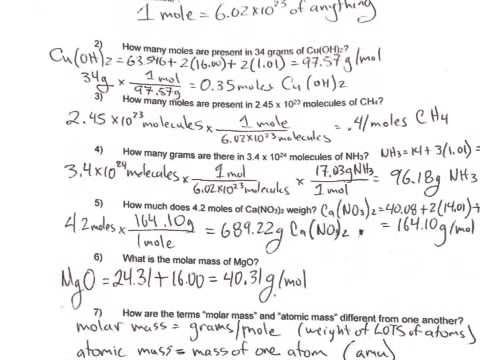 1 mole = 6.02 x 10^23 of anything
2) How many moles are present in 34 grams of Cu(OH)2?
Cu(OH)2 = 63.546 + 2(16.00) + 2(1.01) = 97.57 g/mol
34g x 1 mol / 97.57g = 0.35 moles Cu(OH)2
3) How many moles are present in 2.45 x 10^23 molecules of CH4?
2.45 x 10^23 molecules x 1 mole / 6.02 x 10^23 molecules = .41 moles CH4
4) How many grams are there in 3.4 x 10^24 molecules of NH3? NH3 = 14 + 3(1.01) =
3.4 x 10^24 molecules x 1 mol / 6.02 x 10^23 molecules x 17.03g NH3 / 1 mol = 96.18g NH3
5) How much does 4.2 moles of Ca(NO3)2 weigh? Ca(NO3)2 = 40.08 + 2(14.01) +
4.2 moles x 164.10g / 1 mole = 689.22g Ca(NO)2 . = 164.10 g/mol
6) What is the molar mass of MgO?
MgO = 24.31 + 16.00 = 40.31 g/mol
7) How are the terms "molar mass" and "atomic mass" different from one another?
molar mass = grams/mole (weight of LOTS of atoms)
atomic mass = mass of one atom (amu)